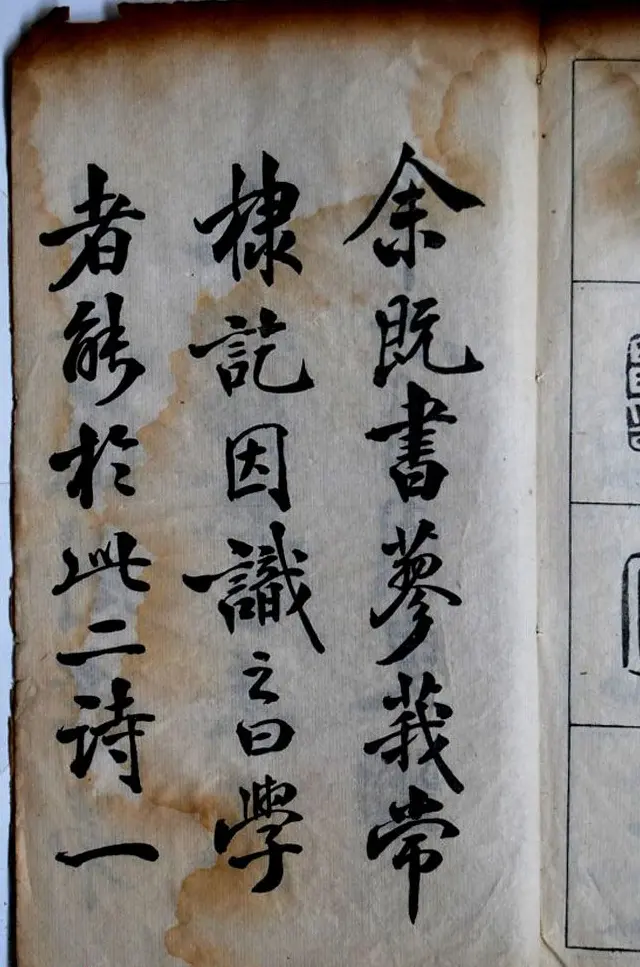 余既書蓼莪常
棣訖因識之曰學
者能於此二詩一